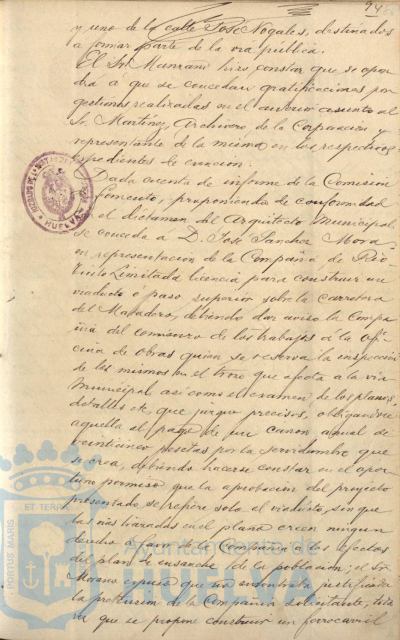 y uno de la calle José Nogales, destinados
a formar parte de la vía pública.
El Sr. Manzano hizo constar que se opon
drá a que se concedan gratificaciones por
gestiones realizadas en el anterior asunto al
Sr. Martínez, Archivero de la Corporación y
representante de la misma en los respectivos
expedientes de
Dada cuenta de informe de la Comisión
Fomento, proponiendo de conformidad
el dictamen del Arquitecto Municipal,
se conceda á D. José Sánchez Mora
en representación de la Compañía de Rio
Tinto Limitada licencia para construir un
viaducto ó paso superior sobre la carretera
del Matadero, debiendo dar aviso la Compa
ñía del comienzo de los trabajos á la ofi
cina de obras quien se reserva la inspección
de los mismos en el trozo que afecta a la vía
Municipal, así como el examen de los planos,
detalles etc, que juzgue precisos, obligándose
aquella al pago de un canon anual de
veinticinco pesetas por la servidumbre que
se crea, debiendo hacerse constar en el opor
tuno permiso que la aprobación del proyecto
presentado se refiere solo al viaducto, sin que
las vías trazadas en el plano creen ningun
derecho á favor de la Compañía a los efectos
del plan de ensanche de la población; el Sr.
Moreno expuso que no encontraba justificada
la pretensión de la Compañía solicitante, toda
vez que se propone construir un ferrocarril
HUELVA
PORTUS MARIS
ET TERRAE
Ayuntamiento de
HUELVA